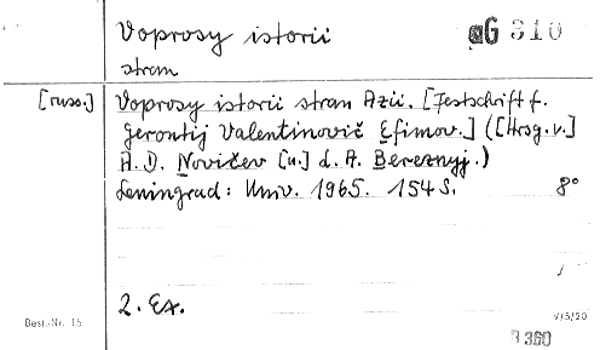 Voprosy istorii aG 310
stran
[russ.] Voprosy istorii stran Azii. [Festschrift f.
Gerontij Valentinovič Efimov.] ([Hrsg. v.]
A.D. Novičev [u.] L. A. Bereznyj.)
Leningrad: Univ. 1965. 154 S. 8°
2. Ex.
Best.-Nr. 15 V/5/20
B 360